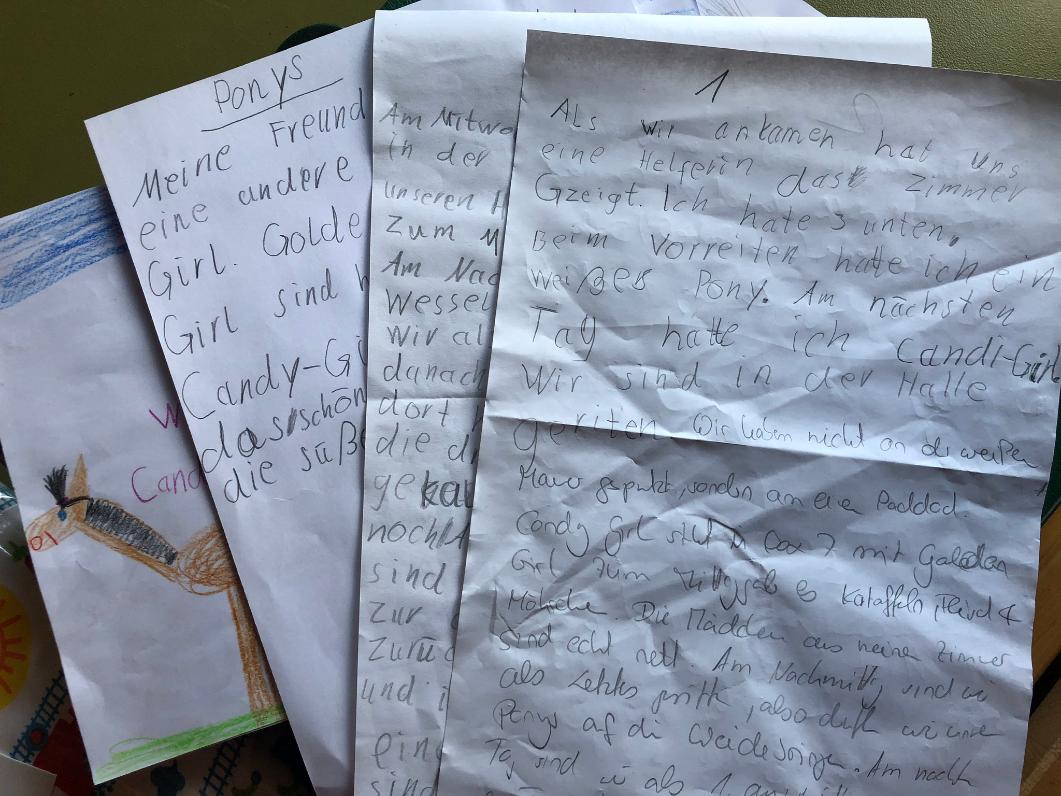 Ponys
Meine Freund
eine andere
Girl. Golde
Girl sind h
Candy-Gi
das schön
die süße
W
Cand
Am Mitwo
in der
unseren H
Zum M
Am Nac
Wessel
Wir al
danach
dort
die d
gekau
noch
sind
Zur
Zurüc
und i
eine
sind
1
Als wir ankamen hat uns
eine Helferin das Zimmer
Gzeigt. Ich hate 3 unten.
Beim Vorreiten hatte ich ein
weißes Pony. Am nächsten
Tag hatte ich Candi-Girl
Wir sind in der Halle
geriten. Wir haben nicht an der weißen
Mauer geputzt, sondern am Paddock.
Candy Girl steht in Box 7 mit Golden
Girl Zum Mittag gab es Kataffeln,
Die Mädchen aus meine Zimmer
sind echt nett. Am Nachmittag sind wir
als Letztes also
Ponys auf die Weide bringen. Am nächsten
Tag sind wir als 1.